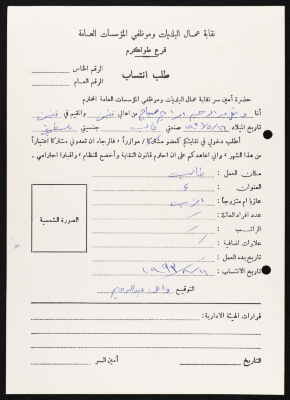 نقابة عمال البلديات وموظفي المؤسسات العامة
فرع طولكرم
الرقم الخاص
طلب انتساب
الرقم العام
حضرة أمين سر نقابة عمال البلديات وموظفي المؤسسات العامة المحترم
أنا عبد الرحيم من اهالي واقيم في
تاريخ الميلاد صنعتي طالب جنسيتي فلسطيني
أطلب دخولي في نقابتكم كعضو مشترك / مؤازر / فالرجاء ان تعدوني مشتركا اعتباراً
من هذا الشهر ، واني اعاهدكم على ان احترم قانون النقابة وأخضع للنظام / واقبلوا احترامي .
مكان العمل : طالب
العنوان :
عازبا ام متزوجاً : اعزب
عدد افراد العائلة :
الراتب :
علاوات اضافية :
تاريخ بدء العمل :
تاريخ الانتساب :
الصورة الشمسية
التوقيع عبد الرحيم
قرارات الهيئة الادارية :
التاريخ
أمين السر